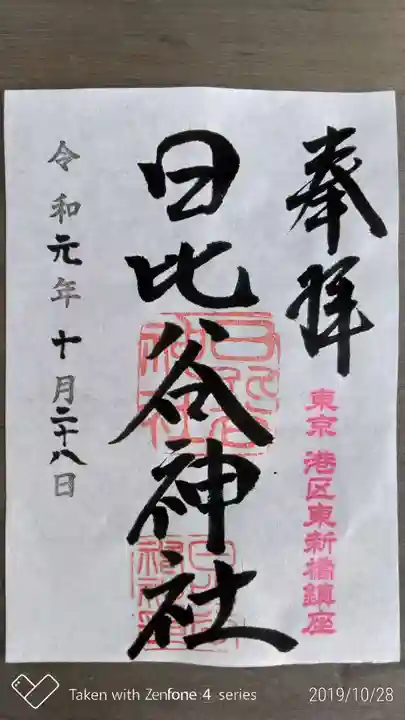 奉拝
東京 港区東新橋鎮座
日比谷神社
令和元年十月二十八日
Taken with Zenfone 4 series
2019/10/28